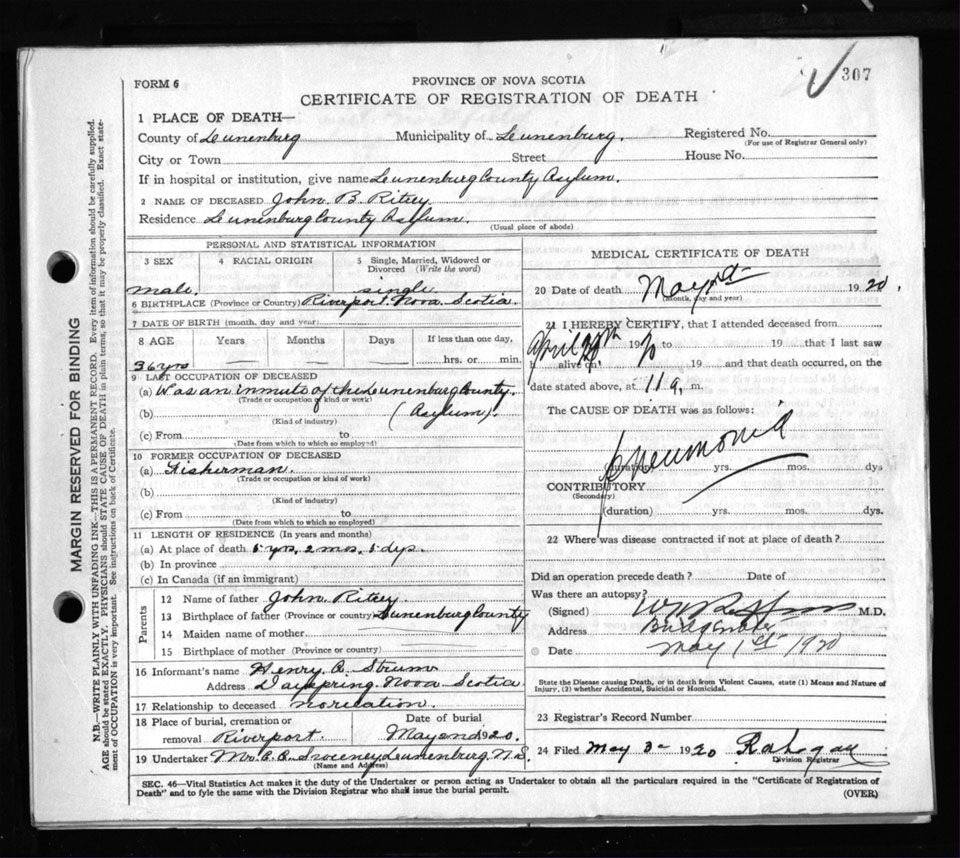 307
FORM 6
PROVINCE OF NOVA SCOTIA
CERTIFICATE OF REGISTRATION OF DEATH
MARGIN RESERVED FOR BINDING
N.B.—WRITE PLAINLY WITH UNFADING INK—THIS IS A PERMANENT RECORD. Every item of information should be carefully supplied.
AGE should be stated EXACTLY. PHYSICIANS should STATE CAUSE OF DEATH in plain terms, so that it may be properly classified. Exact state-
ment of OCCUPATION is very important. See instructions on back of Certificate.
1 PLACE OF DEATH—
County of Lunenburg Municipality of Lunenburg. Registered No.
(For use of Registrar General only)
City or Town Street House No.
If in hospital or institution, give name Lunenburg County Asylum.
2 NAME OF DECEASED John. B. Ritcy
Residence Lunenburg County Asylum.
(Usual place of abode)
PERSONAL AND STATISTICAL INFORMATION
3 SEX 4 RACIAL ORIGIN 5 Single, Married, Widowed or
Divorced (Write the word)
male. single
6 BIRTHPLACE (Province or Country) Riverport. Nova. Scotia.
7 DATE OF BIRTH (month, day and year)
8 AGE Years Months Days If less than one day,
hrs. or min.
36 yrs
9 LAST OCCUPATION OF DECEASED
(a) Was an inmate of the Lunenburg County.
(Trade or occupation or kind of work)
(b) (Asylum).
(Kind of industry)
(c) From to
(Date from which to which so employed)
10 FORMER OCCUPATION OF DECEASED
(a) Fisherman.
(Trade or occupation or kind of work)
(b)
(Kind of industry)
(c) From to
(Date from which to which so employed)
11 LENGTH OF RESIDENCE (In years and months)
(a) At place of death 5 yrs, 2 mos, 5 dys.
(b) In province
(c) In Canada (if an immigrant)
Parents
12 Name of father John. Ritcy
13 Birthplace of father (Province or Country) Lunenburg County
14 Maiden name of mother
15 Birthplace of mother (Province or Country)
16 Informant's name Henry. A. Strum
Address Dayspring. Nova Scotia
17 Relationship to deceased no relation.
18 Place of burial, cremation or Date of burial
removal Riverport. May 2nd 1920.
19 Undertaker Sweeney Lunenburg N.S.
(Name and Address)
MEDICAL CERTIFICATE OF DEATH
20 Date of death May 1st 1920.
(Month, day and year)
21 I HEREBY CERTIFY, that I attended deceased from
April 1920 to 19 that I last saw
h alive on 19 and that death occurred, on the
date stated above, at 11 a. m.
The CAUSE OF DEATH was as follows:
Pneumonia
(duration) yrs. mos. dys
CONTRIBUTORY
(Secondary)
(duration) yrs. mos. dys.
22 Where was disease contracted if not at place of death?
Did an operation precede death? Date of
Was there an autopsy?
(Signed) M.D.
Address Bridgewater
Date May 1st 1920
State the Disease causing Death, or in death from Violent Causes, state (1) Means and Nature of
Injury, (2) whether Accidental, Suicidal or Homicidal.
23 Registrar's Record Number
24 Filed May 3 1920
Division Registrar
SEC. 46—Vital Statistics Act makes it the duty of the Undertaker or person acting as Undertaker to obtain all the particulars required in the "Certificate of Registration of
Death" and to fyle the same with the Division Registrar who shall issue the burial permit.
(OVER)